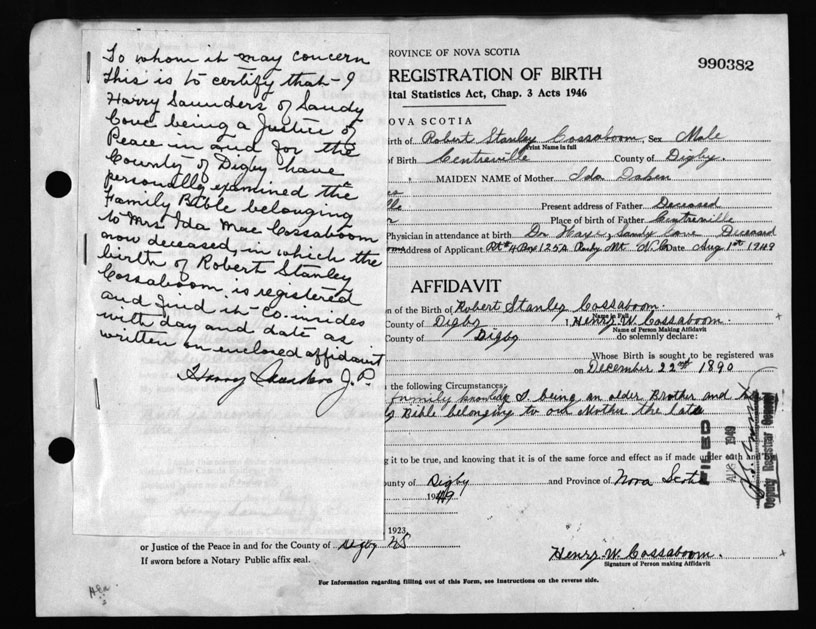 To whom it may concern
This is to certify that I
Harry Saunders of Sandy
Cove being a Justice of
Peace in and for the
County of Digby have
personally examined the
Family Bible belonging
to Mrs Ida Mae Cossaboom
now deceased, in which the
birth of Robert Stanley
Cossaboom is registered
and find it Co-insides
with day and date as
written on enclosed affidavit
Harry Saunders J.P.
ROVINCE OF NOVA SCOTIA
990382
REGISTRATION OF BIRTH
ital Statistics Act, Chap. 3 Acts 1946
OVA SCOTIA
irth of Robert Stanley Cossaboom, Sex Male
Print Name in full
f Birth Centreville County of Digby.
MAIDEN NAME of Mother Ida
Present address of Father Deceased
Place of birth of Father Centreville
Physician in attendance at birth Sandy Cove Deceased
Address of Applicant Rt #4 Box 125A Rocky Mt N.C. Date Aug 1st 1949
AFFIDAVIT
n of the Birth of Robert Stanley Cossaboom.
Name in Full
County of Digby I, Henry W. Cossaboom.
Name of Person Making Affidavit
County of Digby do solemnly declare:
Whose Birth is sought to be registered was
on December 22nd 1890
the following Circumstances:
family knowledge I being an older Brother and
Bible belonging to our Mother the late
g it to be true, and knowing that it is of the same force and effect as if made under oath and by
ounty of Digby and Province of Nova Scotia
1949
1923,
or Justice of the Peace in and for the County of Digby NS
If sworn before a Notary Public affix seal.
Henry W. Cossaboom.
Signature of Person making Affidavit
For Information regarding filling out of this Form, see Instructions on the reverse side.
FILED
1949
Deputy Registrar General